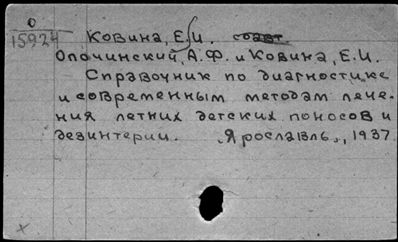 О
15924
Ковина, Е.И. соавт.
Опочинский, А.Ф. и Ковина, Е.И.
Справочник по диагностике
и современным методам лече-
ния летних детских поносов и
дезинтерии. „Ярославль", 1937.
х